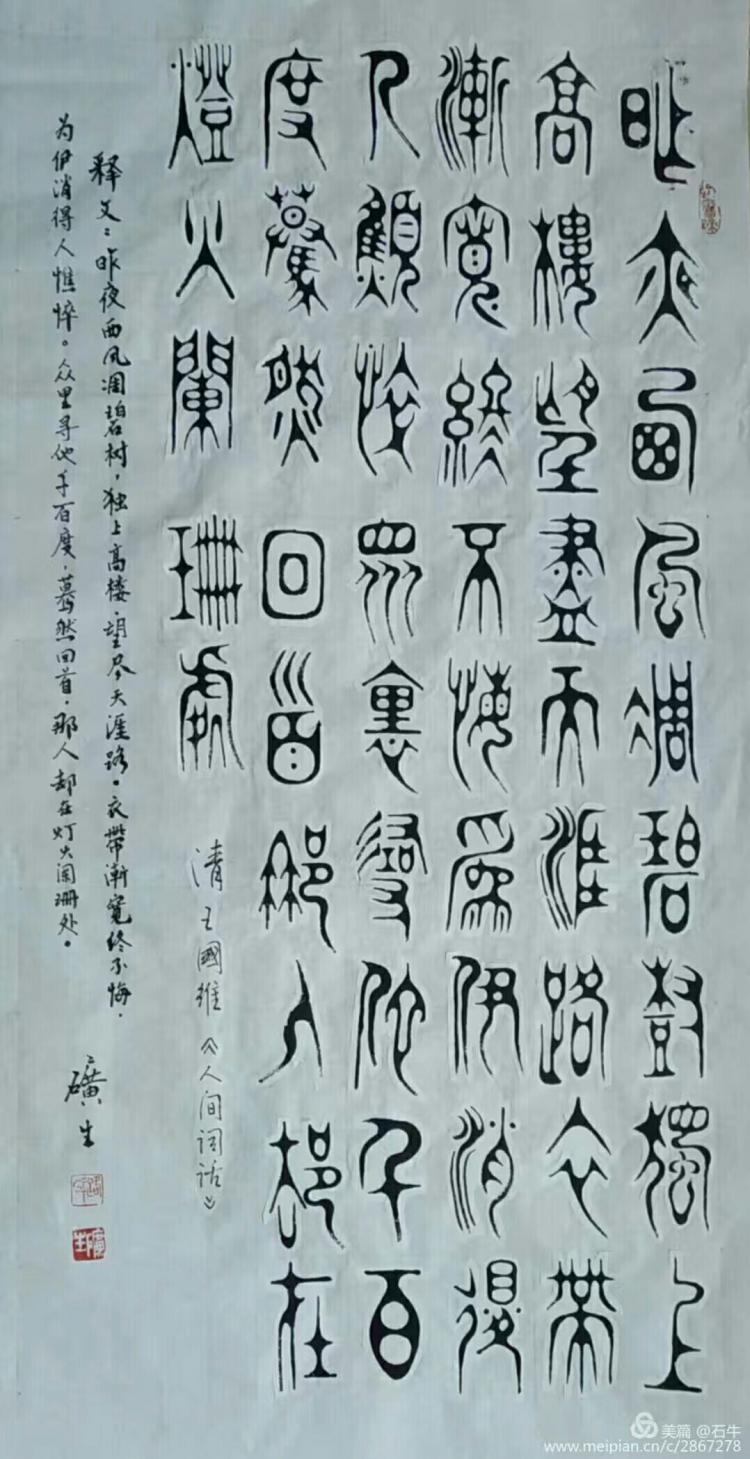 昨夜西風凋碧樹獨上
高樓望盡天涯路衣帶
漸寬終不悔為伊消得
人顦悴眾裏尋他千百
度驀然回首那人却在
燈火闌珊處
清王國維《人间词话》
释文：昨夜西风凋碧树，独上高楼，望尽天涯路。衣带渐宽终不悔，
为伊消得人憔悴。众里寻他千百度，蓦然回首，那人却在灯火阑珊处。
礦生
美篇 @石牛
www.meipian.cn/c/2867278